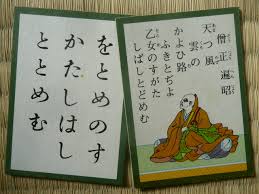 僧正遍昭
天つ風
雲の
かよひ路
ふきとぢよ
乙女のすがた
しばしとどめむ
をとめのす
かたしはし
ととめむ